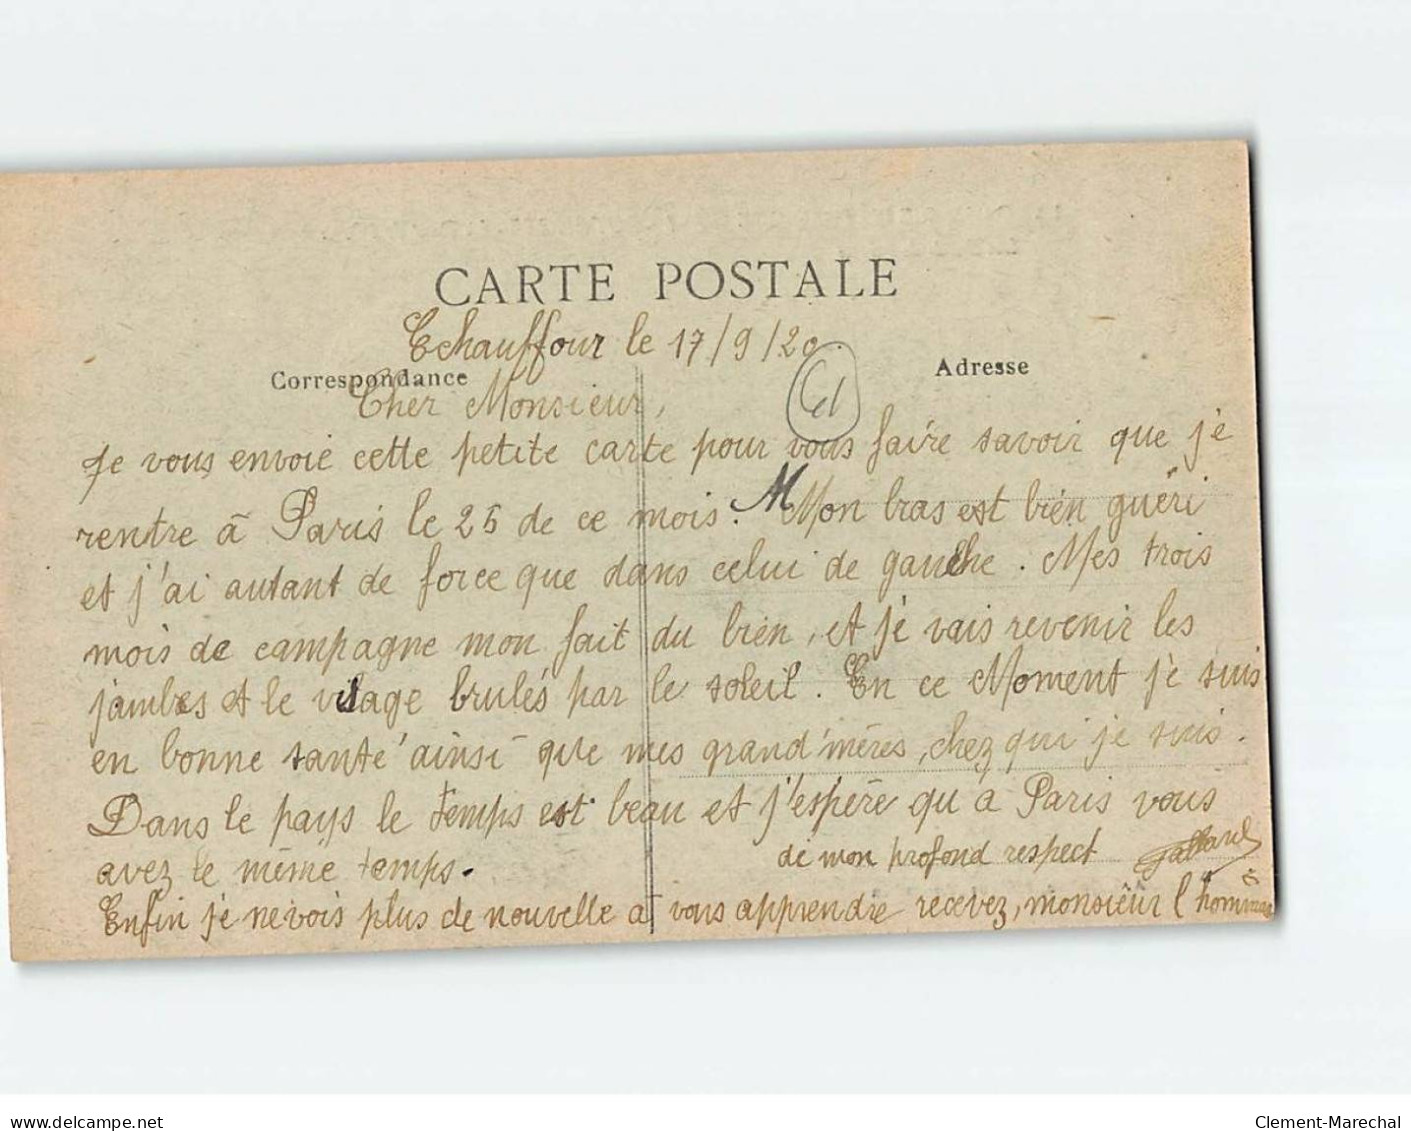 CARTE POSTALE
Echauffour le 17/9/20.
Correspondance
Adresse
Cher Monsieur,
Je vous envoie cette petite carte pour vous faire savoir que je
rentre à Paris le 25 de ce mois. Mon bras est bien guéri
et j'ai autant de force que dans celui de gauche. Mes trois
mois de campagne mon fait du bien, et je vais revenir les
jambes et le visage brulés par le soleil. En ce Moment je suis
en bonne santé ainsi que mes grand'mères, chez qui je suis.
Dans le pays le temps est beau et j'espère qu'à Paris vous
avez le même temps.
Enfin je ne vois plus de nouvelle a vous apprendre recevez, monsieur l'hommage
de mon profond respect
delcampe.net
Clement-Marechal